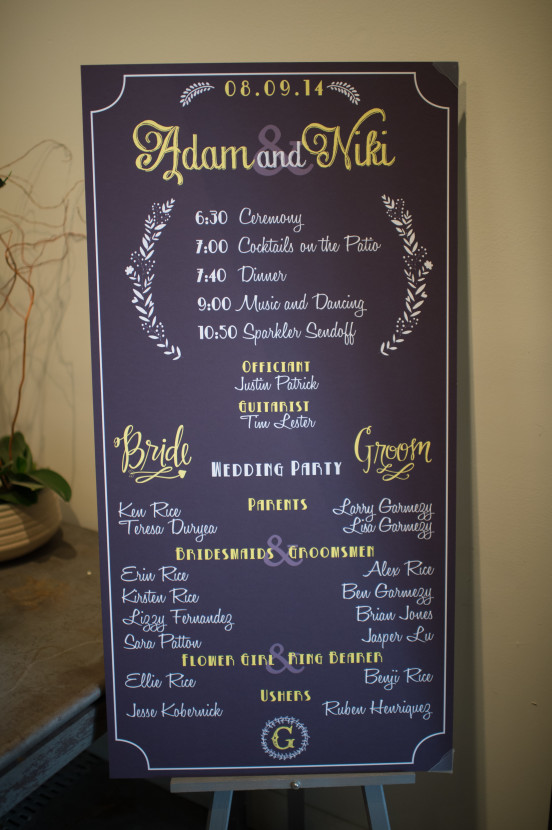 08.09.14
Adam and & Niki
6:30 Ceremony
7:00 Cocktails on the Patio
7:40 Dinner
9:00 Music and Dancing
10:50 Sparkler Sendoff
Officiant
Justin Patrick
Guitarist
Tim Lester
Bride Groom
Wedding Party
Parents
Ken Rice Larry Garmezy
Teresa Duryea Lisa Garmezy
Bridesmaids & Groomsmen
Erin Rice Alex Rice
Kirsten Rice Ben Garmezy
Lizzy Fernandez Brian Jones
Sara Patton Jasper Lu
Flower Girl & Ring Bearer
Ellie Rice Benji Rice
Ushers
Jesse Kobernick Ruben Henriquez
G